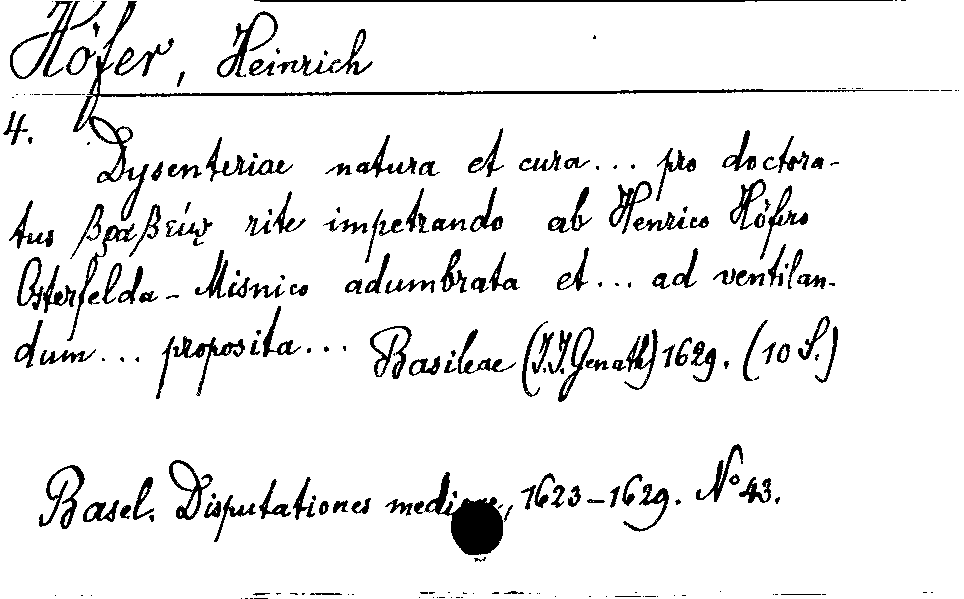 Höfer, Heinrich
4.
Dysenteriae natura et cura... pro doctora-
tus βραβείῳ rite impetrando ab Henrico Höfero
Osterfelda-Misnico adumbrata et... ad ventilan-
dum... proposita... Basileae (J.J. Genath) 1629. (10 S.)
Basel. Disputationes medicae, 1623-1629. No 43.